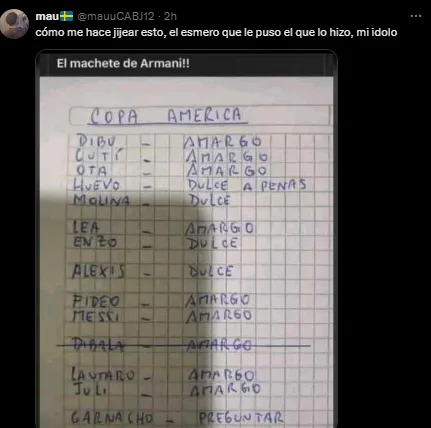 mau🇸🇪 @mauuCABJ12 · 2h
cómo me hace jijear esto, el esmero que le puso el que lo hizo, mi idolo
El machete de Armani!!
COPA AMERICA
DIBU - AMARGO
CUTÍ - AMARGO
OTA - AMARGO
HUEVO - DULCE A PENAS
MOLINA - DULCE
LEA - AMARGO
ENZO - DULCE
ALEXIS - DULCE
FIDEO - AMARGO
MESSI - AMARGO
DIBALA - AMARGO
LAUTARO - AMARGO
JULI - AMARGO
GARNACHO - PREGUNTAR